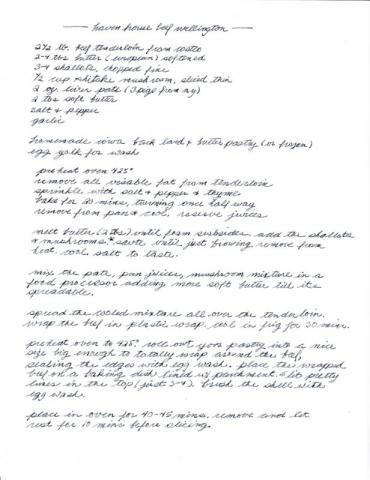 haven house beef wellington
2 1/2 lb. beef tenderloin from costco
2-4 tbs butter (european) softened
3-4 shallots, chopped fine
1/2 cup shitake mushroom, sliced thin
2 oz liver pate (3 pigs from ny)
2 tbs soft butter
salt & pepper
garlic
homemade iowa back lard & butter pastry (or frozen)
egg yolk for wash
preheat oven 425°
remove all visable fat from tenderloin
sprinkle with salt & pepper & thyme
bake for 20 mins, turning once half way
remove from pan & cool, reserve juices
melt butter (2 tbs) until foam subsides. add the shallots
& mushrooms. saute until just browing remove from
heat, cool, salt to taste.
mix the pate, pan juices, mushroom mixture in a
food processor adding more soft butter till its
spreadable.
spread the cooled mixture all over the tenderloin.
wrap the beef in plastic wrap. cool in frig for 30 mins.
preheat oven to 425°. roll out your pastry into a nice
size big enough to totally wrap around the beef,
sealing the edges with egg wash. place the wrapped
beef on a baking dish lined w/ parchment. slit pretty
lines in the top (just 3-4). brush the shell with
egg wash.
place in oven for 40-45 mins. remove and let
rest for 10 mins before slicing.